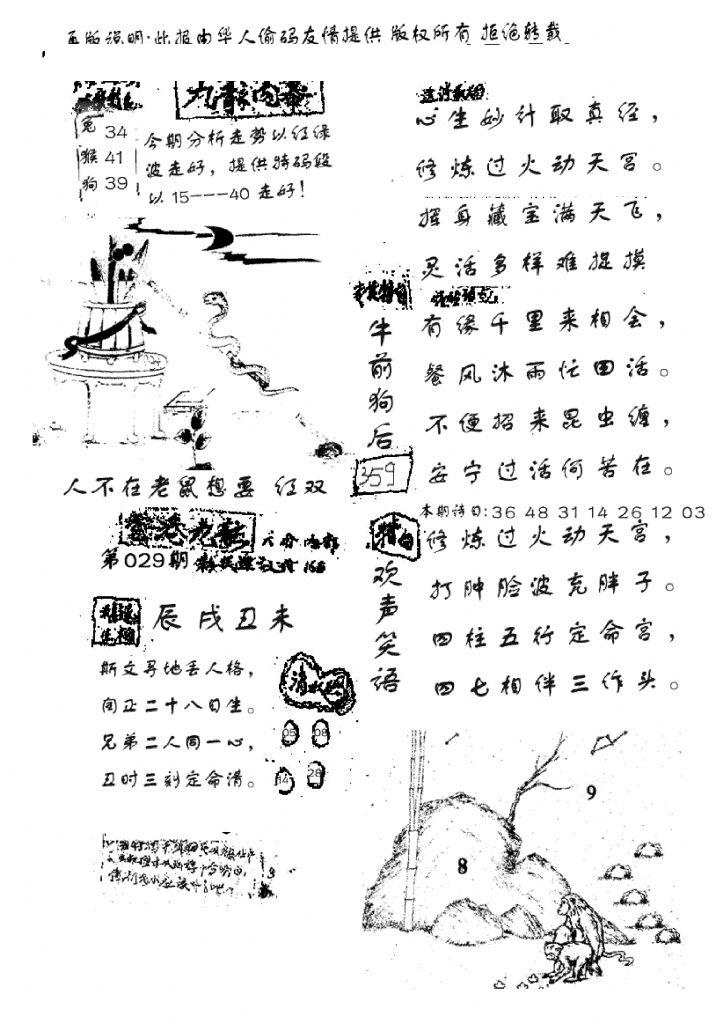 正版说明·此报由华人偷码友情提供 版权所有 拒绝转载
兔 34
猴 41
狗 39
今期分析走势以红绿
波走好，提供特码段
以 15---40 走好！
人不在老鼠想要 红双
第029期
辰戌丑未
斯文寻地丢人格，
闰正二十八日生。
兄弟二人同一心，
丑时三刻定命清。
05 08
14 28
牛前狗后
359
欢声笑语
心生妙计取真经，
修炼过火动天宫。
挥身藏宝满天飞，
灵活多样难捉摸
有缘千里来相会，
餐风沐雨忙田活。
不便招来昆虫缠，
安宁过活何苦在。
本期诗曰:36 48 31 14 26 12 03
修炼过火动天宫，
打肿脸皮充胖子。
四柱五行定命宫，
四七相伴三作头。
8
9